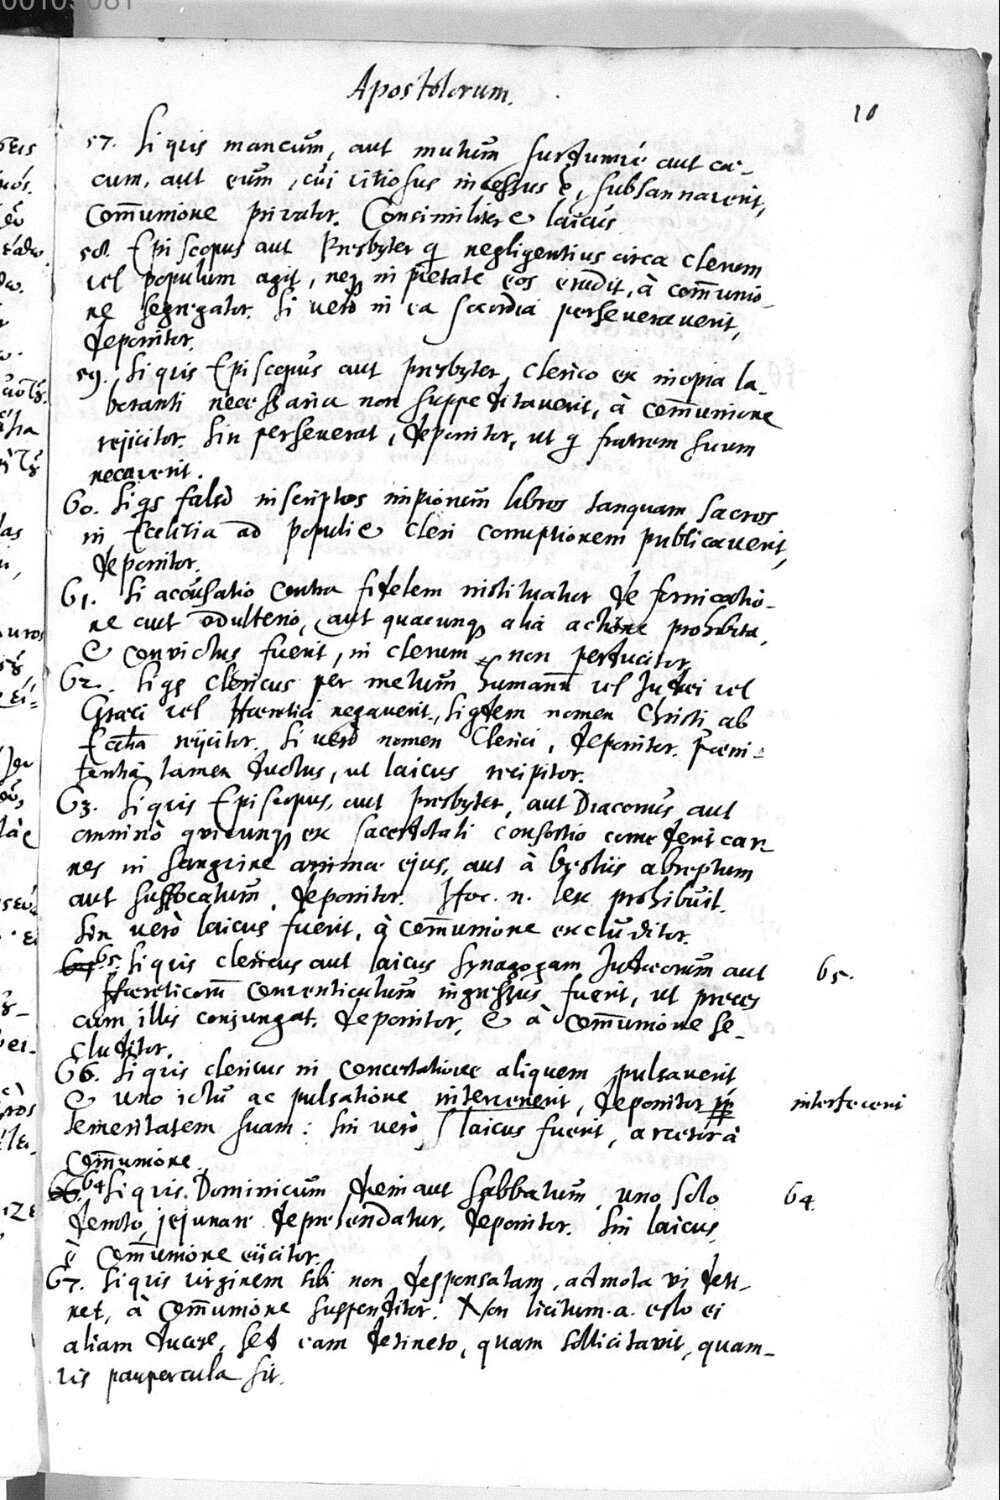 Apostolorum.
10
57. Si quis mancum, aut mutum surdumve aut cæ-
cum, aut eum, cui vitiosus incessus ē, subsannaverit,
Com̄unione privator. Consimiliter & laicus
58. Episcopus aut Presbyter q̄ negligentius circa clerum
vel populum agit, neq̨ in pietate eos erudit, à com̄unio-
ne segregator. Si verò in ea socordia perseveraverit,
deponitor.
59. Si quis Episcopus aut presbyter, clerico ex inopia la-
boranti necessaria non suppeditaverit, à com̄unione
rejicitor. Sin perseverat, deponitor, ut q̄ fratrem suum
necaverit.
60. Si q̄s falsò inscriptos impiorum libros tanquam sacros
in Ecclesia ad populi & cleri corruptionem publicaverit,
deponitor.
61. Si accusatio contra fidelem instituatur de fornicatio-
ne aut adulterio, aut quacunq̨ alia actione prohibita,
& convictus fuerit, in clerum non perducitor.
62. Si q̄s clericus per metum humanū vel Judæi vel
Græci vel Hæretici negaverit, siq̄dem nomen Christi, ab
Ecclīa reijcitor. Si verò nomen Clerici, deponitor. Pœni-
tentiā tamen ductus, ut laicus recipitor.
63. Si quis Episcopus, aut Presbyter, aut Diaconus aut
omninò quicunq̨ ex sacerdotali consortio comederit car
nes in sanguine animæ ejus, aut à bestiis abreptum
aut suffocatum, deponitor. Hoc .n. lex prohibuit.
Sin verò laicus fuerit, à com̄unione excluditor.
65. Si quis clericus aut laicus Synagogam Judæorum aut
65.
Hæreticorū conventiculum ingressus fuerit, ut preces
cum illis conjungat, deponitor, & à com̄unione se-
cluditor.
66. Si quis clericus in concertatione aliquem pulsaverit
& uno ictū ac pulsatione intervenerit, deponitor pp̄
interfecerit
temeritatem suam: sin verò laicus fuerit, arcetor à
com̄unione.
64 Si quis Dominicum diem aut Sabbatum, uno solo
64.
demto, jejunare deprehendatur, deponitor. Sin laicus,
è com̄unione eiicitor.
67. Si quis virginem sibi non desponsatam, admota vi deti-
net, à com̄unione suspenditor. Non licitum .a. esto ei
aliam ducere, sed eam detineto, quam sollicitavit, quam-
vis paupercula sit.